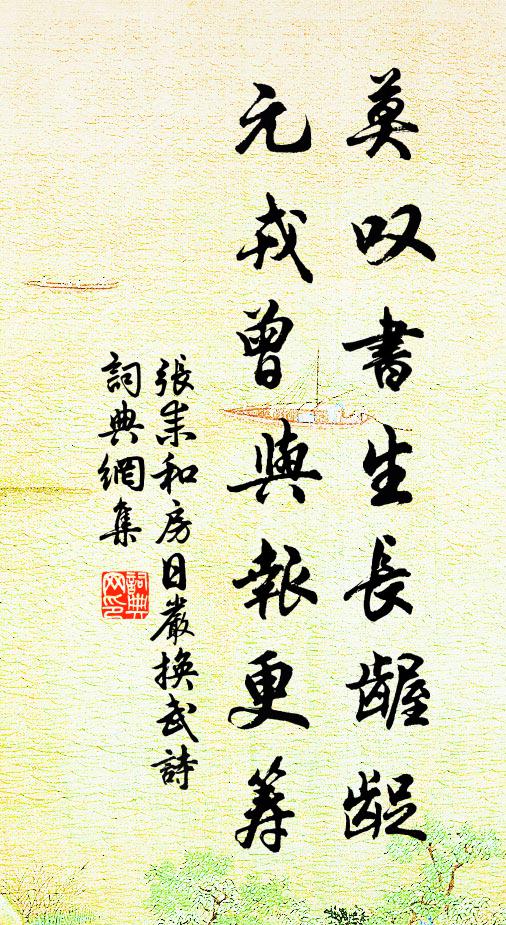 莫叹書生長齷齪
元戎曾與報更筹
張耒和房日嚴換武詩
詞典網集
詞典
网印